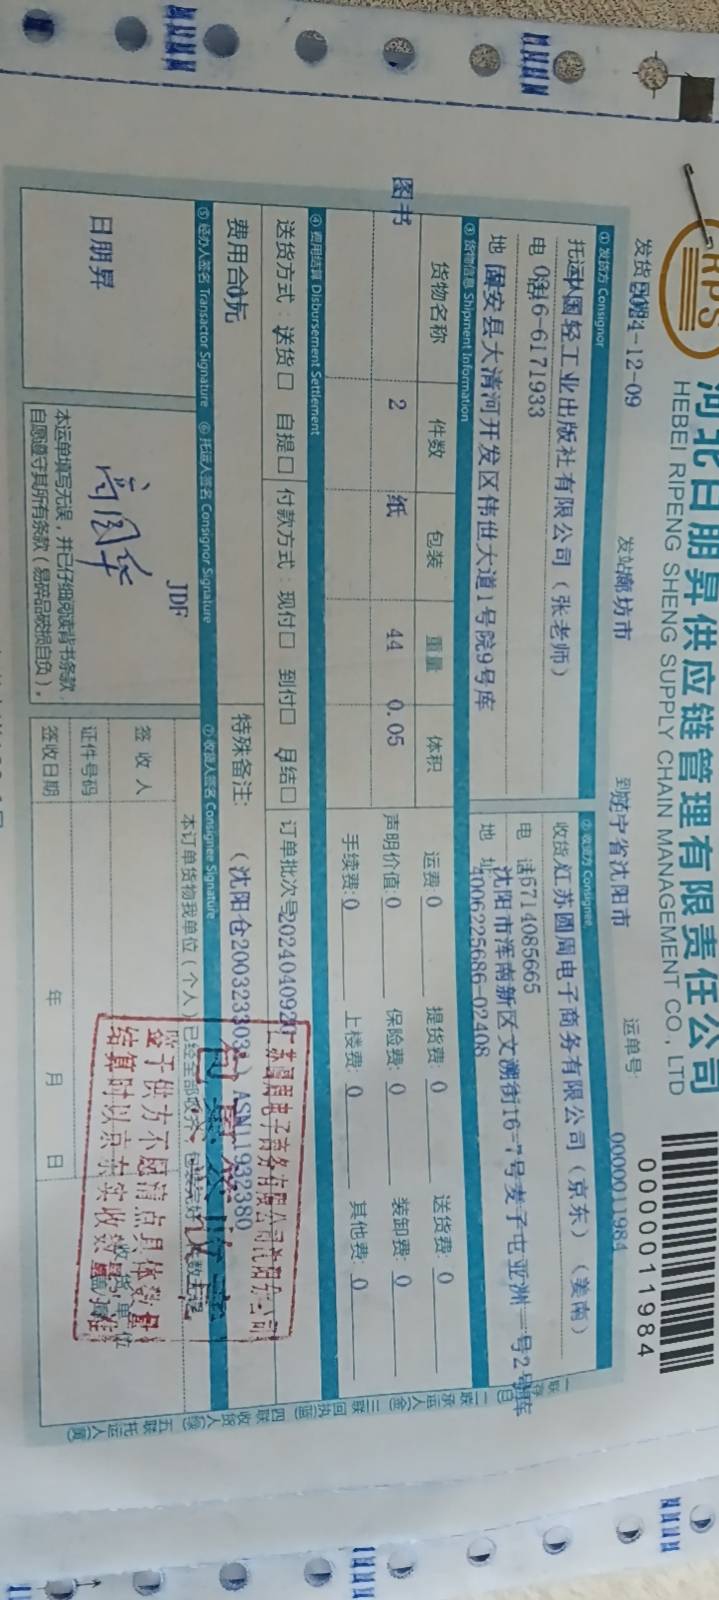 RPS
河北日朋昇供应链管理有限责任公司
HEBEI RIPENG SHENG SUPPLY CHAIN MANAGEMENT CO., LTD
0000011984
发货日期 2024-12-09 发站 廊坊市 到站 辽宁省沈阳市 运单号: 0000011984
① 发货方 Consignor
托运人 中国轻工业出版社有限公司（张老师）
电话 0316-6171933
地 固安县大清河开发区伟世大道1号院9号库
② 收货方 Consignee
收货 江苏圆周电子商务有限公司（京东）（姜南）
电 话 15714085665
4006225686-02408
地 址 沈阳市浑南新区文溯街16-7号麦子屯亚洲一号2号库
③ 货物信息 Shipment Information
货物名称 件数 包装 重量 体积
图书 2 纸 44 0.05
运费: 0 提货费: 0 送货费: 0
声明价值: 0 保险费: 0 装卸费: 0
手续费: 0 上楼费: 0 其他费: 0
④ 费用结算 Disbursement Settlement
送货方式：送货□ 自提□ 付款方式：现付□ 到付□ 月结□ 订单批次号
费用合 0元 特殊备注: （沈阳仓 ASN11932380
⑤ 经办人签名 Transactor Signature ⑥ 托运人签名 Consignor Signature ⑦ 收货人签名 Consignee Signature
日朋昇
JDF
本运单填写无误，并已仔细阅读背书条款，
自愿遵守其所有条款（易碎品破损自负）。
本订单货物我单位（个人）已经全部收齐
签 收 人
证件号码
签收日期 年 月 日
江苏圆周电子商务有限公司沈阳分公司
鉴于供方不愿清点具体数量
结算时以京东实收数量为准